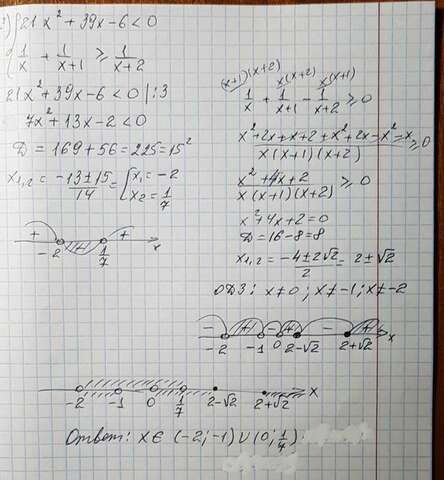 2) { 21x² + 39x - 6 < 0
1/x + 1/(x+1) ≥ 1/(x+2)
21x² + 39x - 6 < 0 | :3
7x² + 13x - 2 < 0
D = 169 + 56 = 225 = 15²
x₁,₂ = (-13 ± 15)/14 = [ x₁ = -2
x₂ = 1/7
+ + 
-2 1/7 x
(x+1)(x+2) x(x+2) x(x+1)
1/x + 1/(x+1) - 1/(x+2) ≥ 0
(x² + 2x + x + 2 + x² + 2x - x² - x)/(x(x+1)(x+2)) ≥ 0
(x² + 4x + 2)/(x(x+1)(x+2)) ≥ 0
x² + 4x + 2 = 0
D = 16 - 8 = 8
x₁,₂ = (-4 ± 2√2)/2 = 2 ± √2
ОДЗ: x ≠ 0; x ≠ -1; x ≠ -2
- + - + - +
-2 -1 0 2-√2 2+√2 x
-2 -1 0 1/7 2-√2 2+√2 x
Ответ: x ∈ (-2; -1) ∪ (0; 1/4)